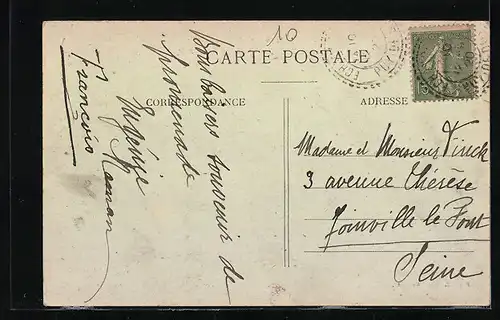 10
CARTE POSTALE
CORRESPONDANCE
ADRESSE
Bons baisers souvenir de
promenade
Eugénie
François
Madame et Monsieur Vinck
3 avenue Thérèse
Joinville le Pont
Seine
15